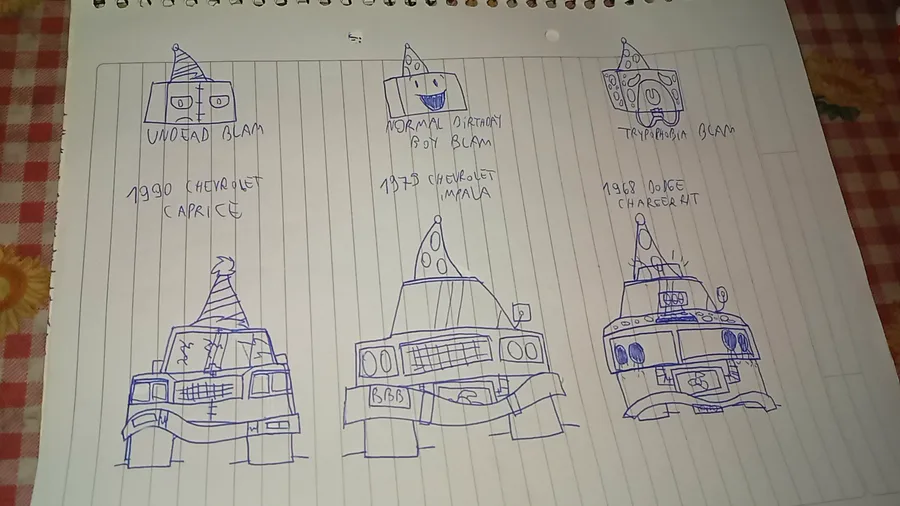 UNDEAD BLAM
NORMAL BIRTHDAY
BOY BLAM
TRYPOPHOBIA BLAM
1990 CHEVROLET
CAPRICE
1975 CHEVROLET
IMPALA
1968 DODGE
CHARGER R/T
BBB